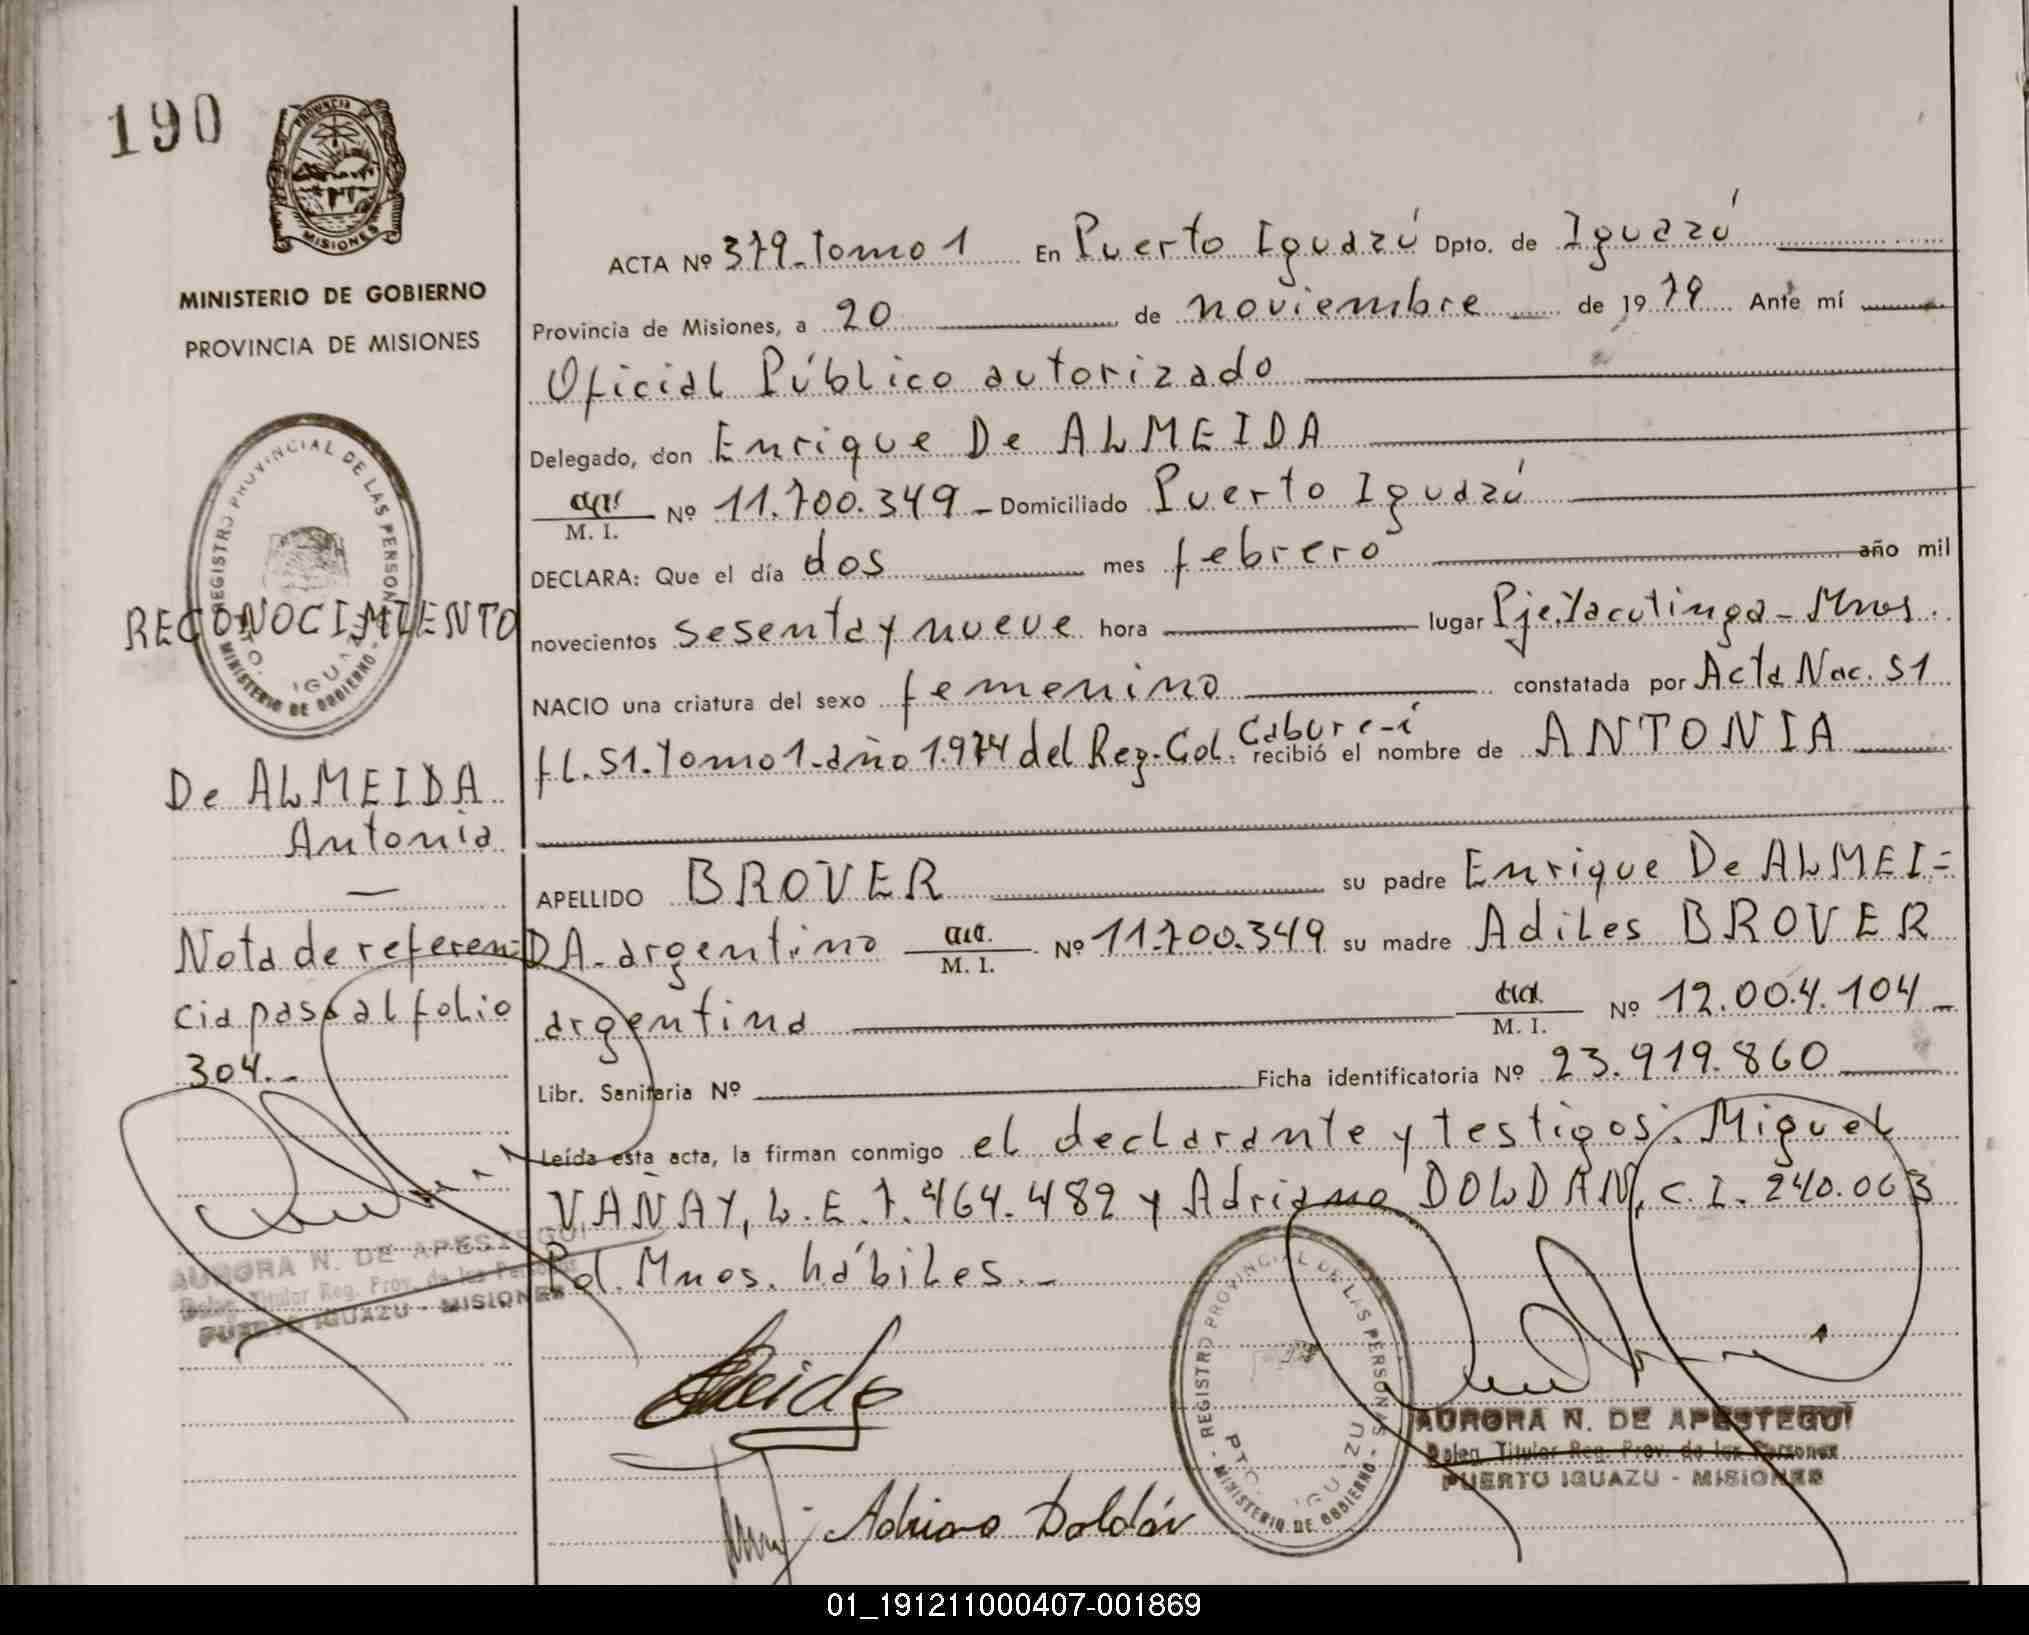 190
PROVINCIA DE
MISIONES
MINISTERIO DE GOBIERNO
PROVINCIA DE MISIONES
REGISTRO PROVINCIAL DE LAS PERSONAS
PTO. IGUAZU
MINISTERIO DE GOBIERNO
RECONOCIMIENTO
De ALMEIDA
Antonia
Nota de referen=
cia pasa al folio
304.-
AURORA N. DE APESTEGUI
Deleg. Titular Reg. Prov. de las Personas
PUERTO IGUAZU - MISIONES
ACTA Nº 379-Tomo 1 En Puerto Iguazú Dpto. de Iguazú
Provincia de Misiones, a 20 de noviembre de 1979 Ante mí
Oficial Público autorizado
Delegado, don Enrique De ALMEIDA
M. I. Nº 11.700.349 - Domiciliado Puerto Iguazú
DECLARA: Que el día dos mes febrero año mil
novecientos sesenta y nueve hora lugar Pje. Yacutinga - Mnes.
NACIO una criatura del sexo femenino constatada por Acta Nac. 51
fl. 51. Tomo 1-año 1.974 del Reg. Col. Cabure-í recibió el nombre de ANTONIA
APELLIDO BROVER su padre Enrique De ALMEI=
DA-argentino M. I. Nº 11.700.349 su madre Adiles BROVER
argentina M. I. Nº 12.004.104 -
Libr. Sanitaria Nº Ficha identificatoria Nº 23.919.860
Leída esta acta, la firman conmigo el declarante y testigos: Miguel
VAÑAY, L.E. 7.464.482 y Adriano DOLDAN, C.I. 240.063
Pol. Mnes. hábiles.-
Adriano Doldán
REGISTRO PROVINCIAL DE LAS PERSONAS
PTO. IGUAZU
MINISTERIO DE GOBIERNO
AURORA N. DE APESTEGUI
Deleg. Titular Reg. Prov. de las Personas
PUERTO IGUAZU - MISIONES
01_191211000407-001869